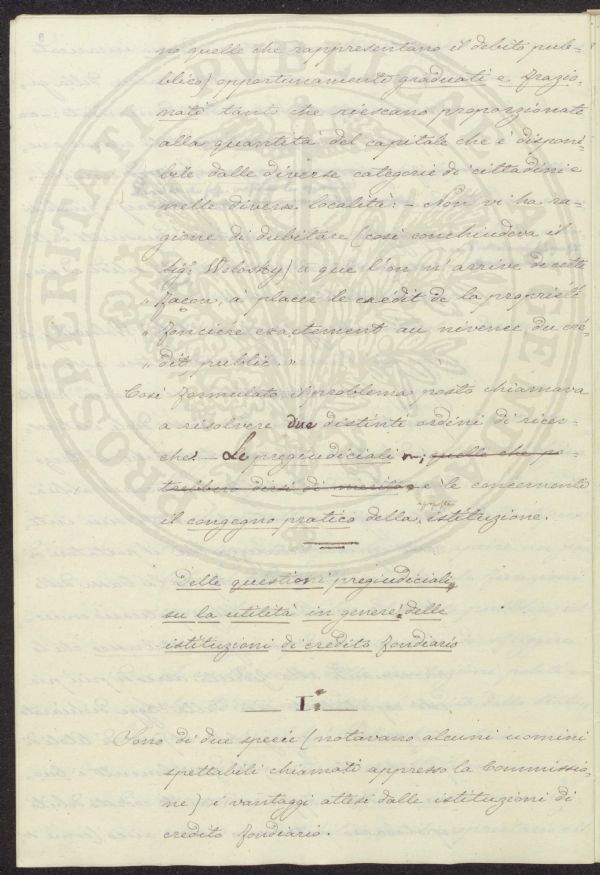 no quelle che rappresentano il debito pub-
blico) opportunamenti graduati e frazio-
nati tanto che riescano proporzionate
alla quantità del capitale che è disponi-
bile dalle diverse categorie di cittadini e
nelle diverse località: - Non vi ha ra-
gione di dubitare (così conchiudeva il
Sigr Woloski) "que l'on n'arrive de cette
" façon, à placer le crédit de la propriété
" foncière exactement au niveau du cré-
" dit public."
Così formulato il problema posto chiamava
a risolvere due distinti ordini di ricer-
che: - Le pregiudiciali quelle che po-
trebbero dirsi di merito e le concernenti
il congegno pratico della istituzione.
Delle questioni pregiudiciali
su la utilità in genere delle
istituzioni di credito fondiario
I.
Sono di due specie (notavano alcuni uomini
spettabili chiamati appresso la Commissio-
ne) i vantaggi attesi dalle istituzioni di
credito fondiario.
PROSPERITATI PUBLICAE